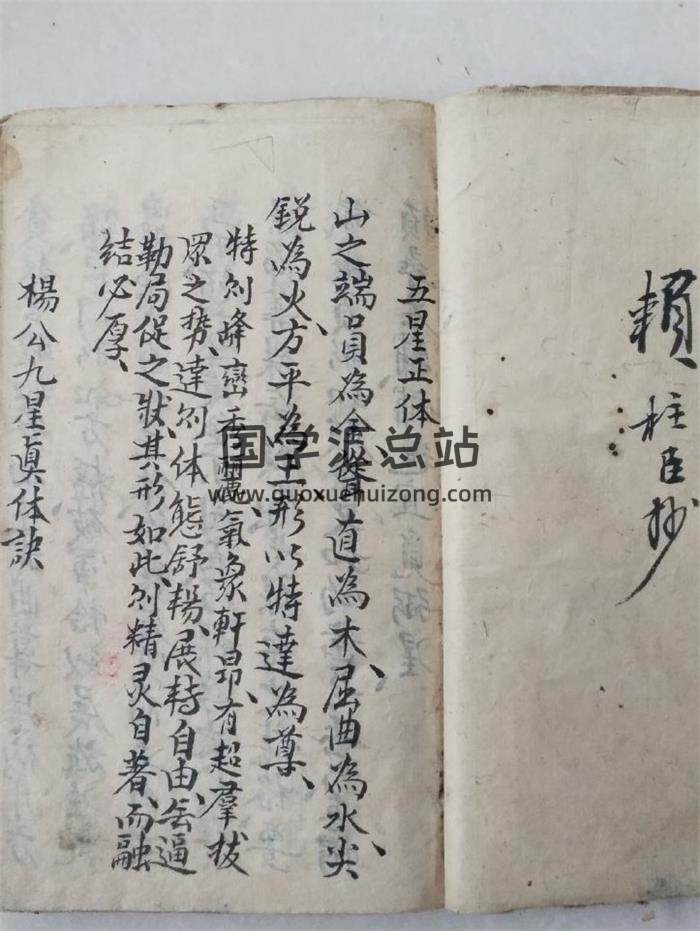 賴柱臣抄
五星正体
山之端員為金聳直為木、屈曲為水、尖
銳為火、方平為土、形以特達為尊、
特則峰巒秀麗、氣象軒昂、有超羣拔
眾之势、達則体態舒暢、展轉自由、無逼
勒局促之狀、其形如此、則精灵自著、而融
結必厚、
楊公九星真体訣
国学汇总站
www.guoxuehuizong.com